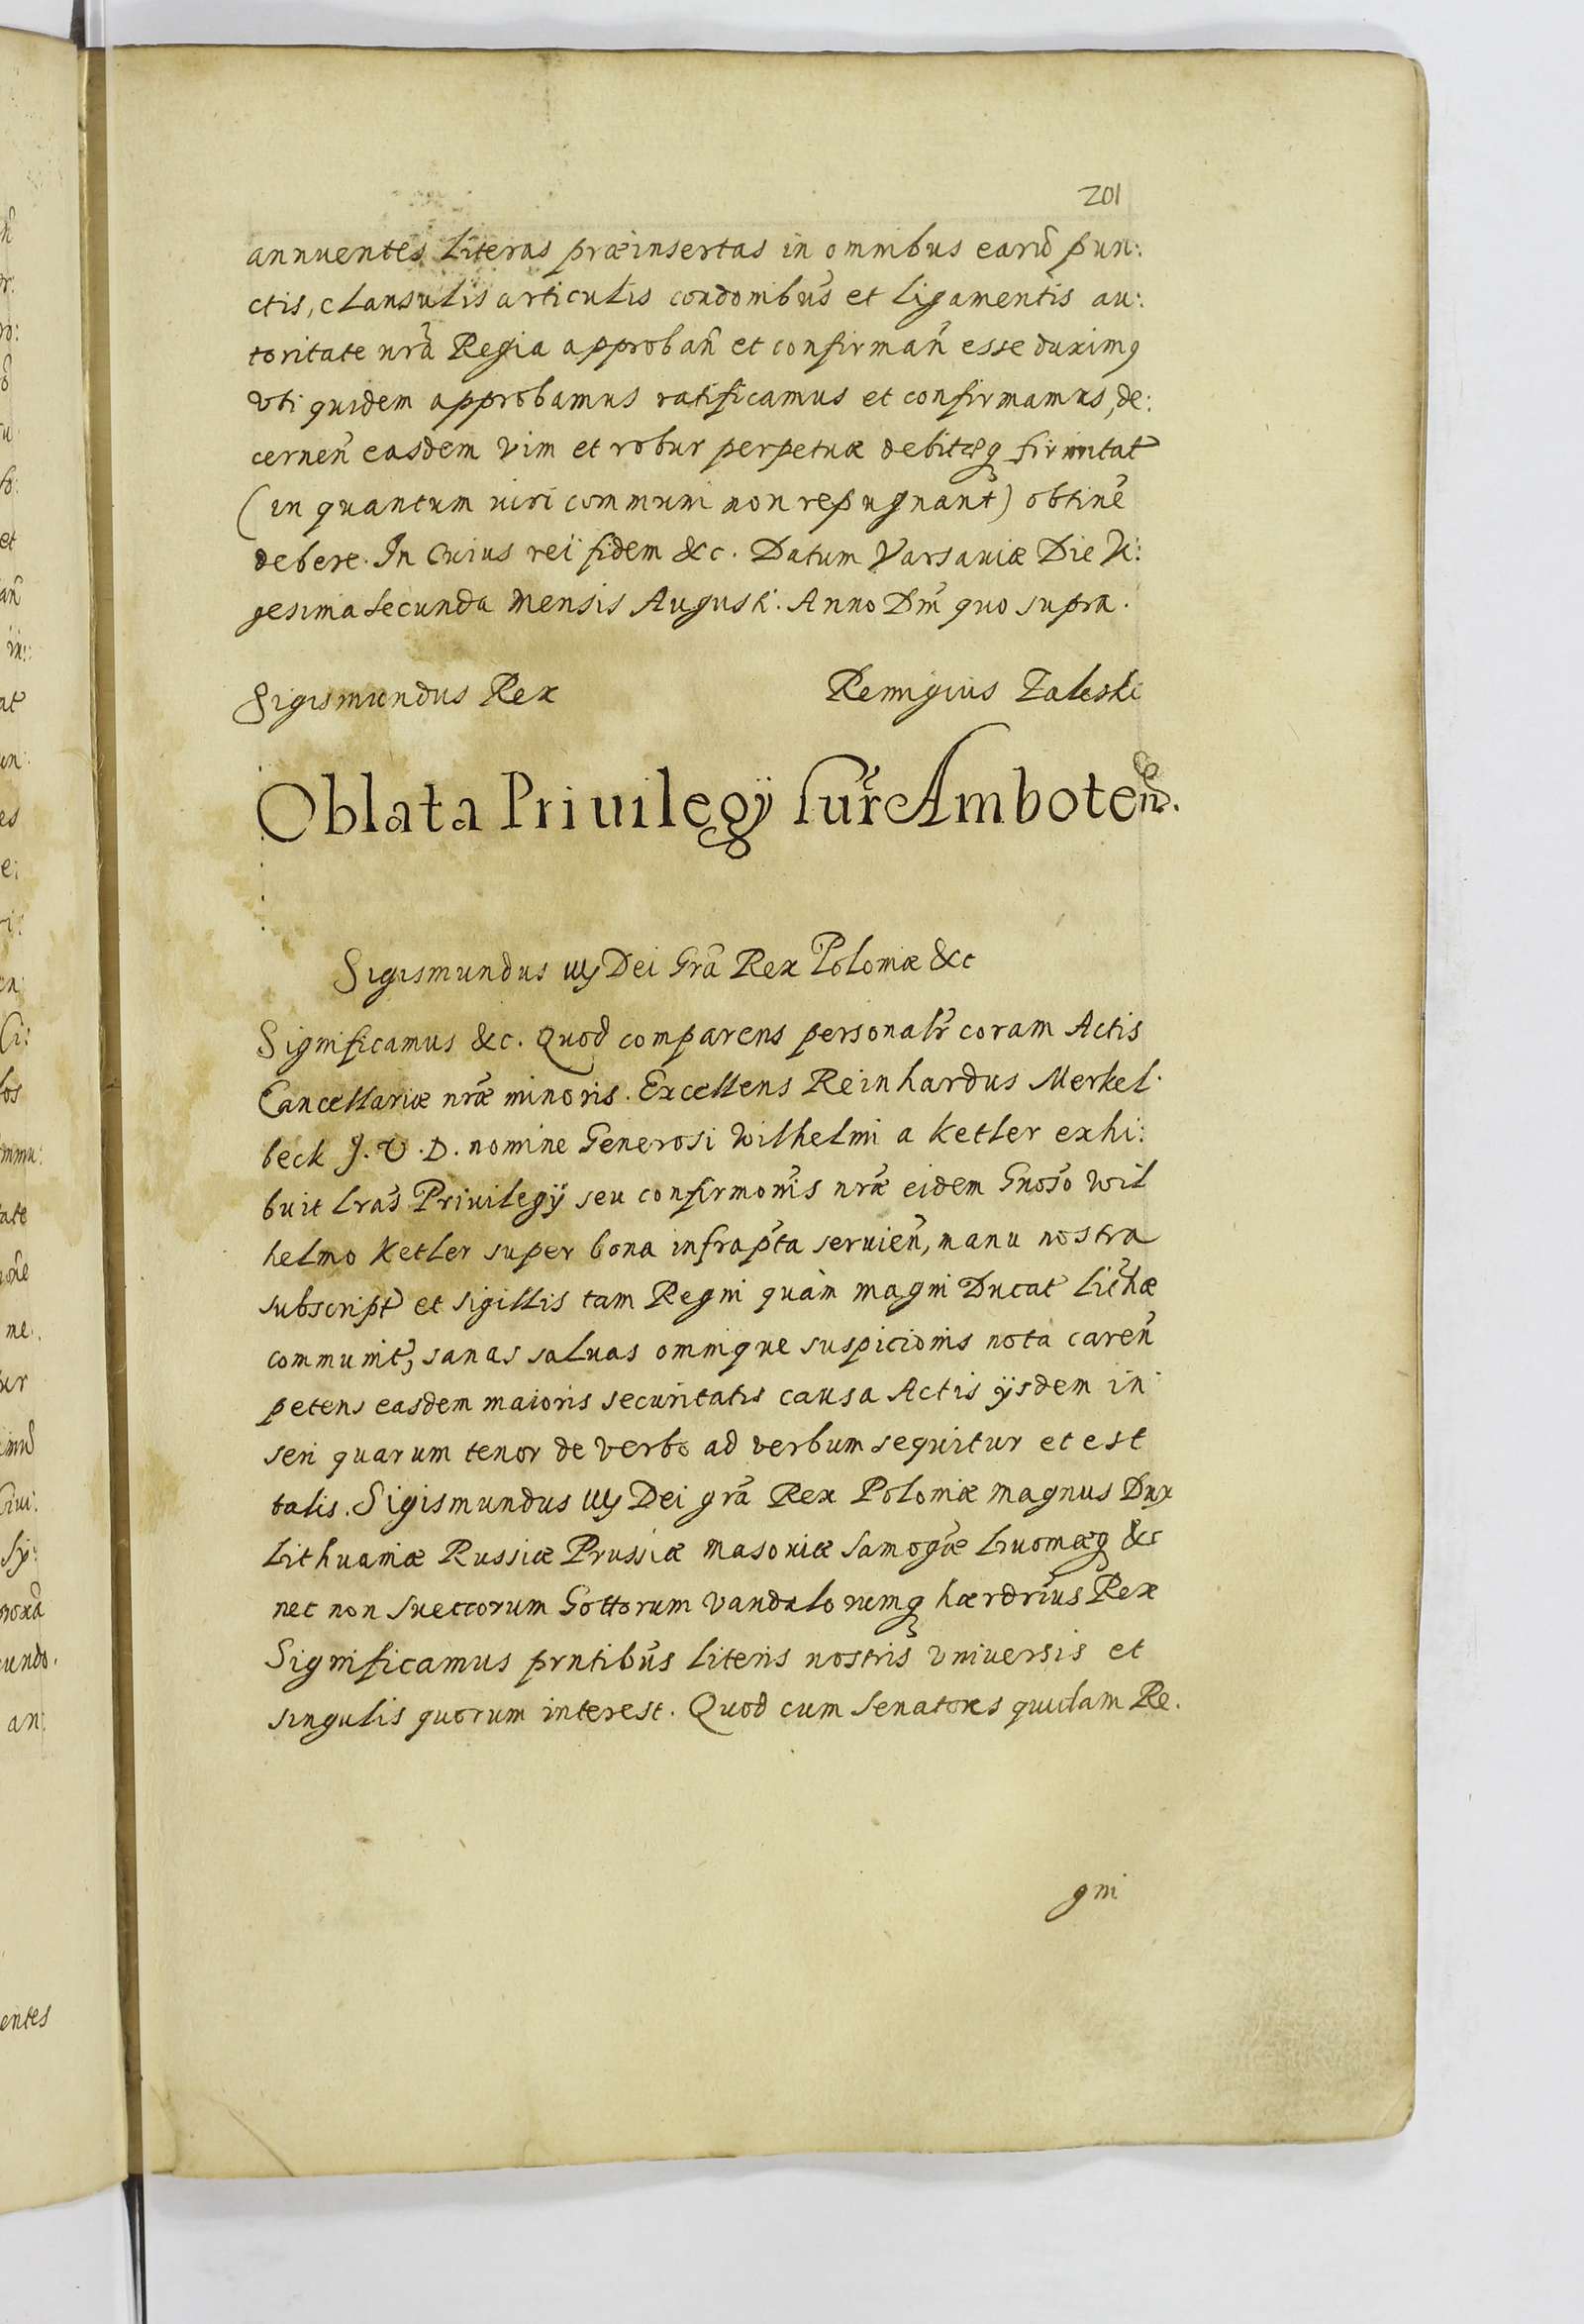 201
annuentes Literas præinsertas in omnibus earũ pun:
ctis, clausulis articulis condonibus et Ligamentis au:
toritate nrã Regia approbañ et confirmañ esse duximq
vti quidem approbamus ratificamus et confirmamus, de:
cerneñ easdem vim et robur perpetuæ debitæq firmitat
(in quantum iuri communi non repugnant) obtine
debere. In Cuius rei fidem &c. Datum Varsauiæ Die Vi:
gesima secunda Mensis Augusti. Anno Dm̃ quo supra.
Sigismundus Rex Remigius Zaleski
Oblata Priuilegÿ sup̃r Amboteñ.
Sigismundus iij Dei Grã Rex Poloniæ &c
Significamus &c. Quod comparens personalr̃ coram Actis
Cancellariæ nræ minoris. Excellens Reinhardus Merkel.
beck J. V. D. nomine Generosi Wilhelmi a Ketler exhi:
buit Lras Priuilegÿ seu confirmonis nræ eidem Gnoso Wil
helmo Ketler super bona infrapta seruieñ, manu nostra
subscript et sigillis tam Regni quàm magni Ducat Lithæ
communit, sanas saluas omniq ue suspicionis nota careñ
petens easdem maioris securitatis causa Actis ijsdem in
seri quarum tenor de verbo ad verbum sequitur et est
talis. Sigismundus iij Dei grã Rex Poloniæ magnus Dux
Lithuaniæ Russiæ Prussiæ Masouiæ Samogiæ Liuoniæq &c
nec non Sueccorum Gottorum Vandalorumq hærdrius Rex
Significamus prntibus literis nostris vniuersis et
singulis quorum interest. Quod cum Senatores quidam Re.
gni